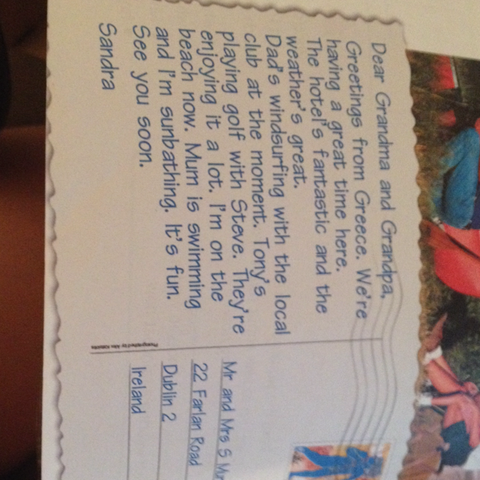 Dear Grandma and Grandpa,
Greetings from Greece. We're
having a great time here.
The hotel's fantastic and the
weather's great.
Dad's windsurfing with the local
club at the moment. Tony's
playing golf with Steve. They're
enjoying it a lot. I'm on the
beach now. Mum is swimming
and I'm sunbathing. It's fun.
See you soon.
Sandra
Mr and Mrs S
22 Farlan Road
Dublin 2
Ireland